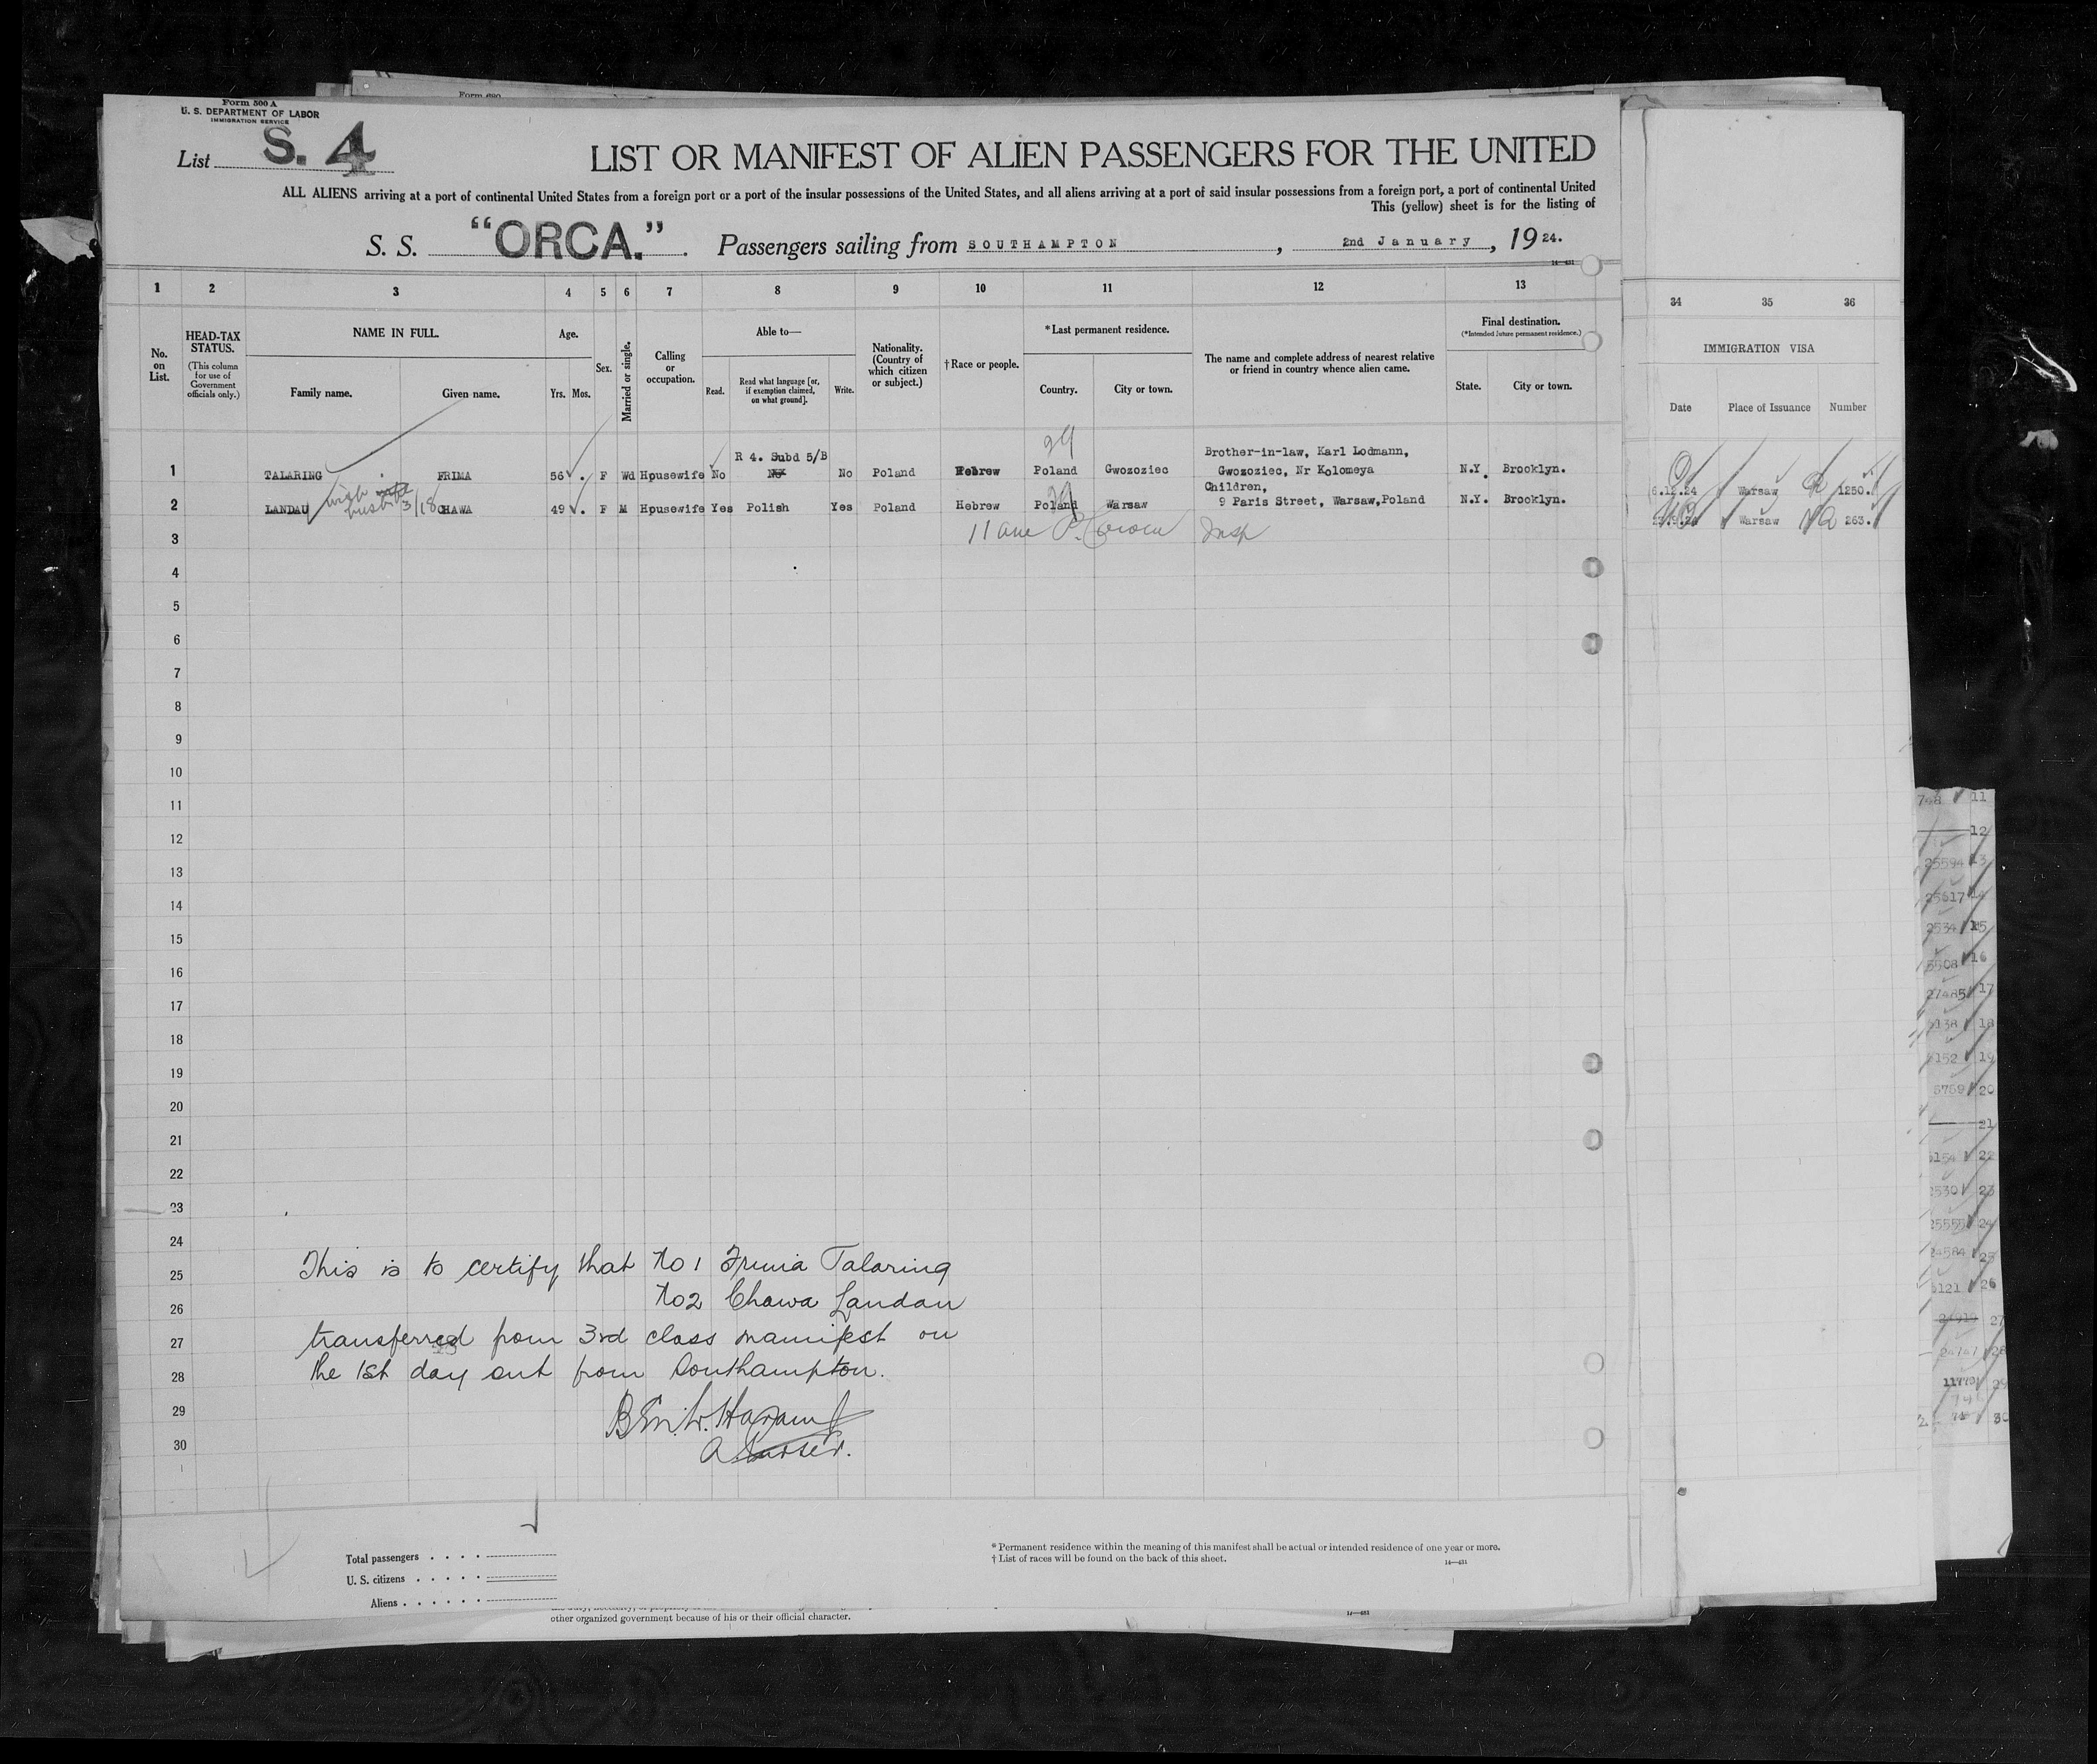 Form 500 A
U. S. DEPARTMENT OF LABOR
IMMIGRATION SERVICE
List S. 4
LIST OR MANIFEST OF ALIEN PASSENGERS FOR THE UNITED
ALL ALIENS arriving at a port of continental United States from a foreign port or a port of the insular possessions of the United States, and all aliens arriving at a port of said insular possessions from a foreign port, a port of continental United
This (yellow) sheet is for the listing of
S. S. "ORCA." Passengers sailing from SOUTHAMPTON, 2nd January, 1924.
14-431
1 2 3 4 5 6 7 8 9 10 11 12 13
34 35 36
No. on List.
HEAD-TAX STATUS.
(This column for use of Government officials only.)
NAME IN FULL.
Family name. Given name.
Age.
Yrs. Mos.
Sex.
Married or single.
Calling or occupation.
Able to—
Read. Read what language [or, if exemption claimed, on what ground]. Write.
Nationality. (Country of which citizen or subject.)
†Race or people.
*Last permanent residence.
Country. City or town.
The name and complete address of nearest relative or friend in country whence alien came.
Final destination.
(*Intended future permanent residence.)
State. City or town.
IMMIGRATION VISA
Date Place of Issuance Number
R 4. Subd 5/B
Brother-in-law, Karl Lodmann,
1 TALARING FRIMA 56 F Wd Housewife No No Poland Hebrew Poland Gwozoziec Gwozoziec, Nr Kolomeya N.Y. Brooklyn.
Warsaw 1250.
Children,
2 LANDAU CHAWA 49 F M Housewife Yes Polish Yes Poland Hebrew Poland Warsaw 9 Paris Street, Warsaw, Poland N.Y. Brooklyn.
Warsaw 263.
3/18
3
Insp
4
5
6
7
8
9
10
11
12
13
14
15
16
17
18
19
20
21
22
23
24
25 This is to certify that No 1 Frima Talaring
26 No 2 Chawa Landau
27 transferred from 3rd class manifest on
28 the 1st day out from Southampton.
29
30
A Purser.
Total passengers
U. S. citizens
Aliens
* Permanent residence within the meaning of this manifest shall be actual or intended residence of one year or more.
† List of races will be found on the back of this sheet.
14—431
other organized government because of his or their official character.